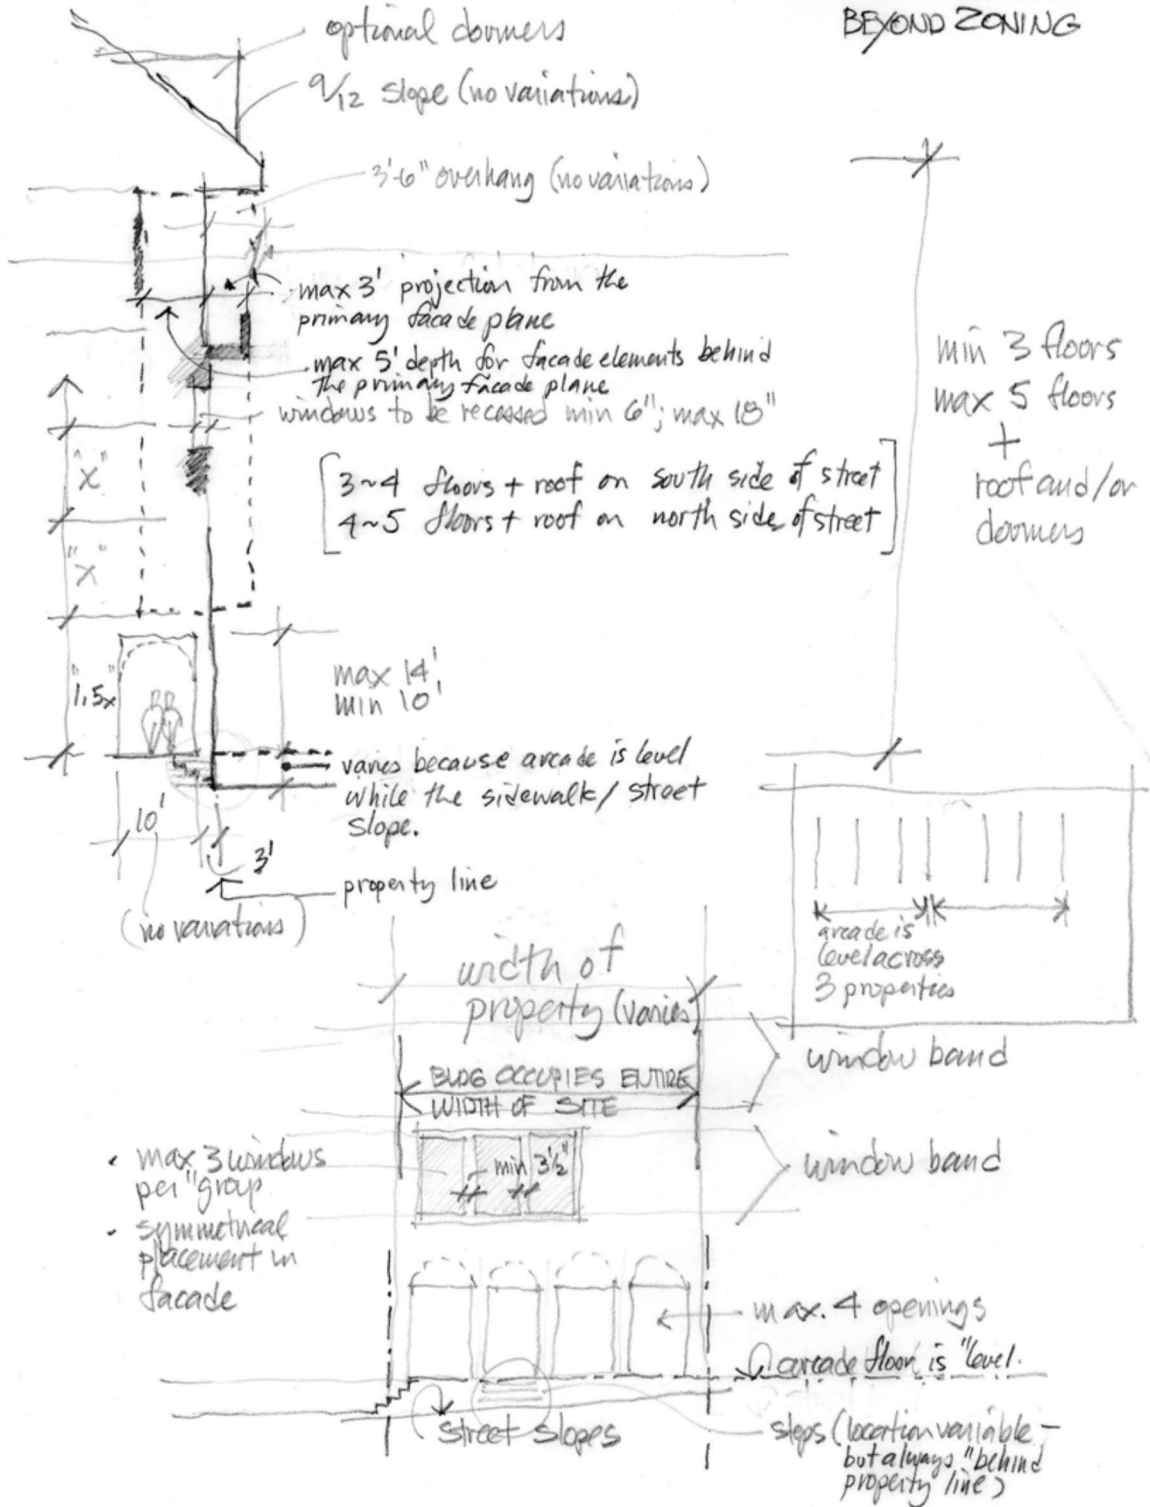 BEYOND ZONING
optional dormers
9/12 slope (no variations)
3'-6" overhang (no variations)
max 3' projection from the
primary facade plane
max 5' depth for facade elements behind
the primary facade plane
windows to be recessed min 6"; max 18"
[3~4 floors + roof on south side of street
4~5 floors + roof on north side of street]
min 3 floors
max 5 floors
+
roof and/or
dormers
"x"
"x"
"1.5x"
max 14'
min 10'
varies because arcade is level
while the sidewalk/street
slope.
10'
3'
property line
(no variations)
arcade is
level across
3 properties
width of
property (varies)
window band
BLDG OCCUPIES ENTIRE
WIDTH OF SITE
window band
min 3½"
• max 3 windows
per "group
• symmetrical
placement in
facade
max. 4 openings
arcade floor is "level.
street slopes
steps (location variable –
but always "behind
property" line)